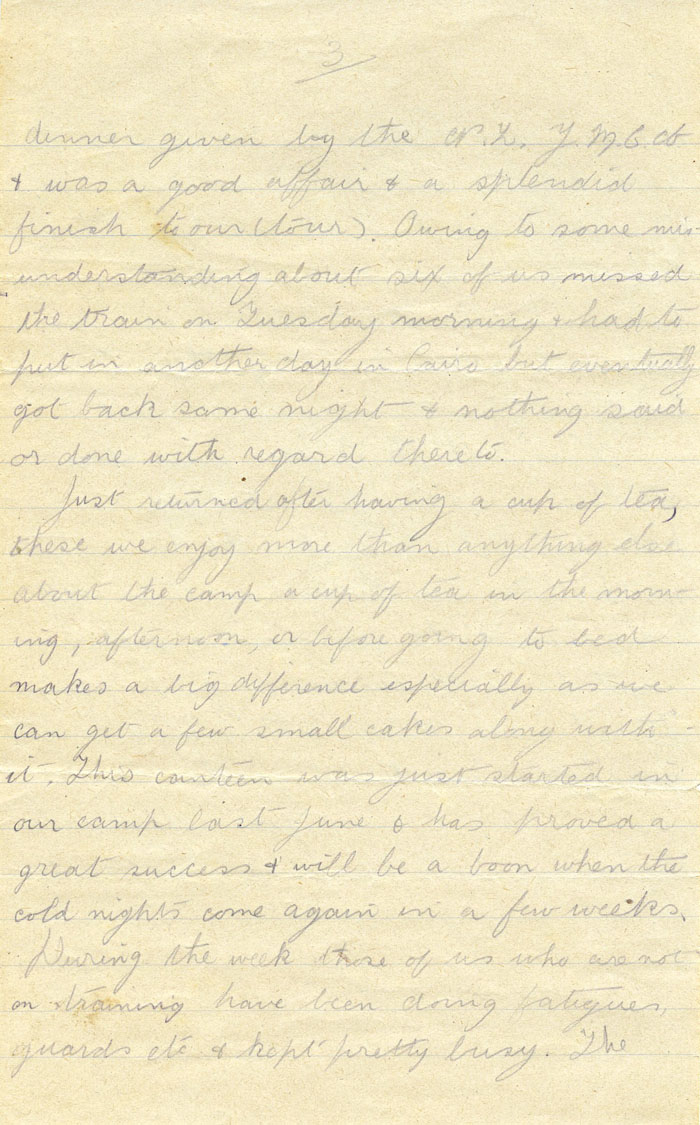 3
dinner given by the N.Z. Y.M.C.A
& was a good affair & a splendid
finish to our (tour) Owing to some mis-
understanding about six of us missed
the train on Tuesday morning & had to
put in another day in Cairo but eventually
got back same night & nothing said
or done with regard thereto.
Just returned after having a cup of tea,
these we enjoy more than anything else
about the camp a cup of tea in the morn-
ing, afternoon, or before going to bed
makes a big difference especially as we
can get a few small cakes along with
it. This canteen was just started in
our camp last June & has proved a
great success & will be a boon when the
cold nights come again in a few weeks.
During the week those of us who are not
on training have been doing fatigues,
guards etc & kept pretty busy. The